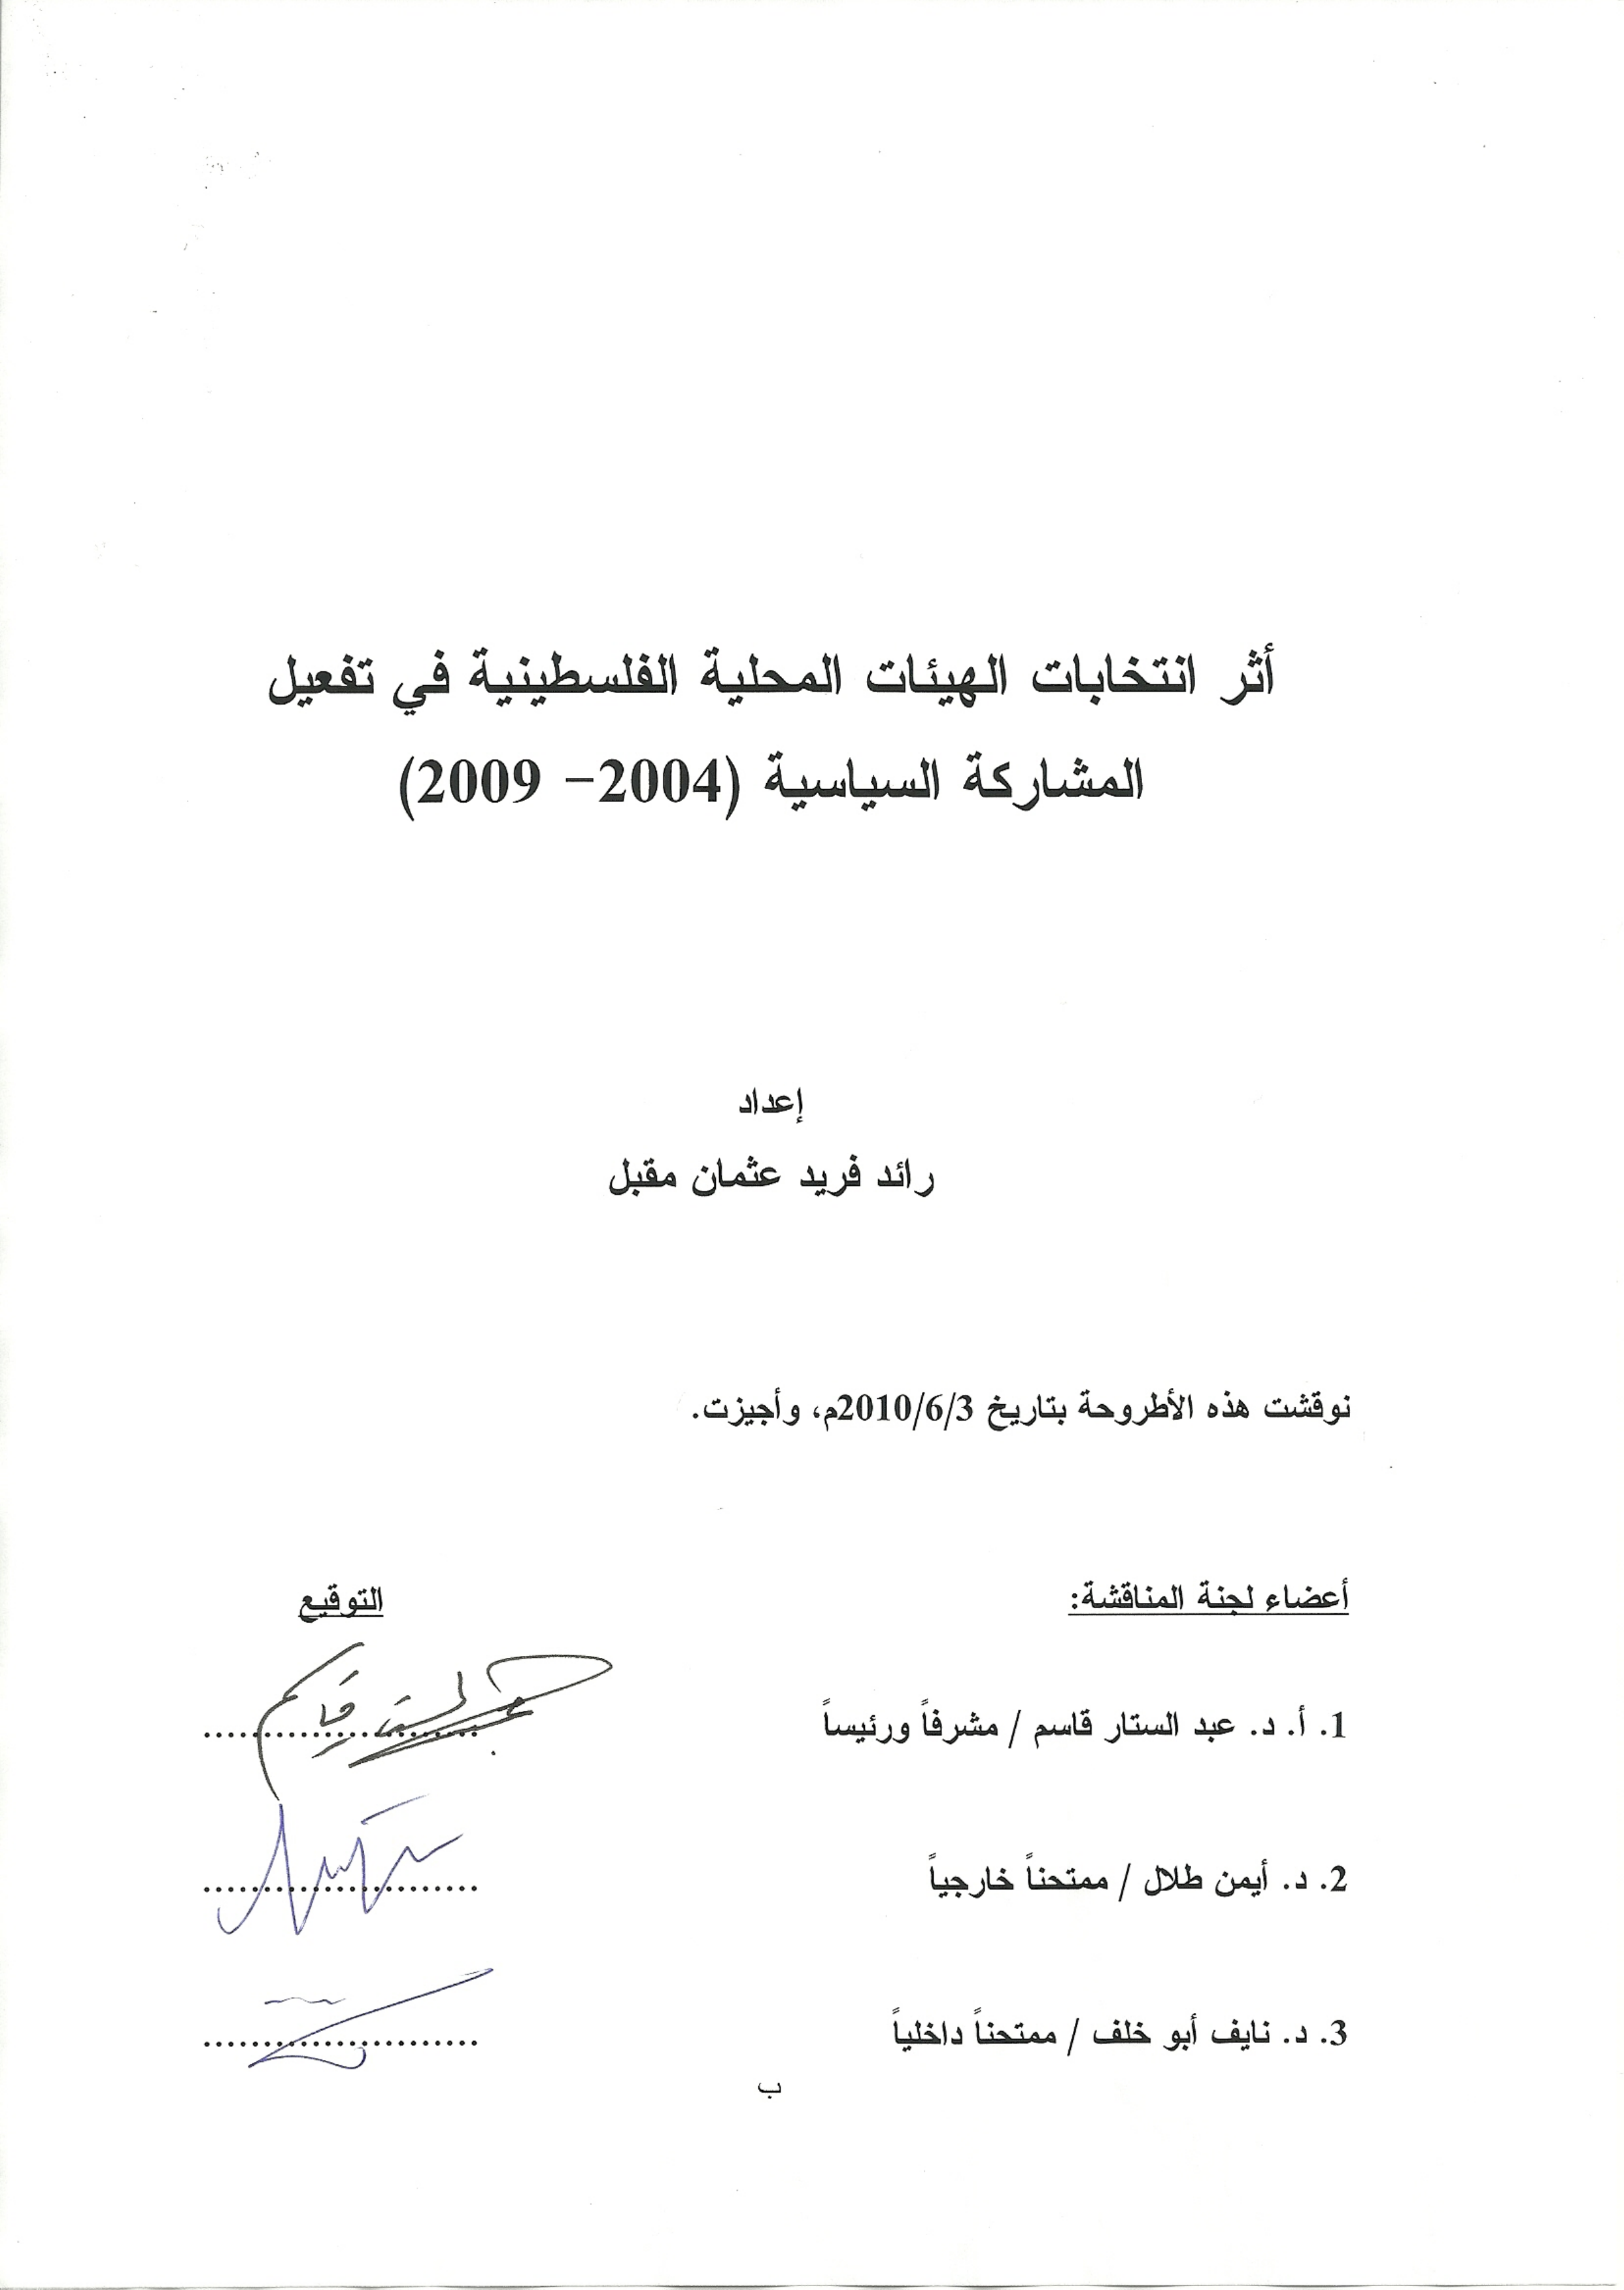 أثر انتخابات الهيئات المحلية الفلسطينية في تفعيل
المشاركة السياسية (2004– 2009)
إعداد
رائد فريد عثمان مقبل
نوقشت هذه الأطروحة بتاريخ 2010/6/3م، وأجيزت.
أعضاء لجنة المناقشة: التوقيع
1. أ. د. عبد الستار قاسم / مشرفاً ورئيساً ........................
2. د. أيمن طلال / ممتحناً خارجياً ........................
3. د. نايف أبو خلف / ممتحناً داخلياً ........................
ب